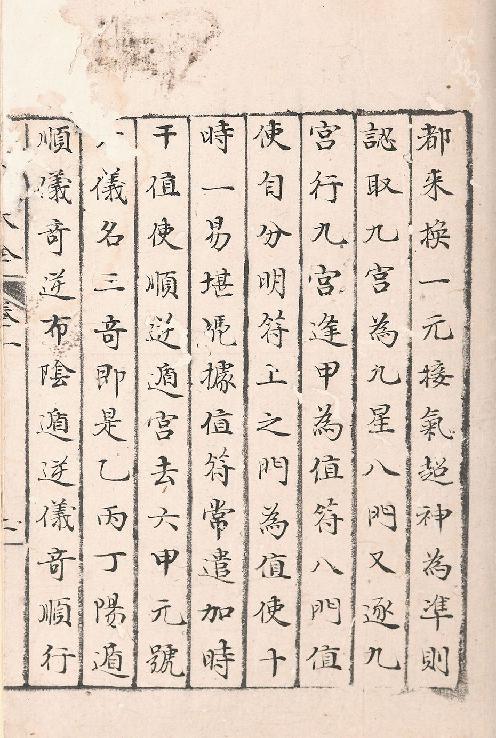 都來換一元接氣超神為準則
認取九宮為九星八門又逐九
宮行九宮逢甲為值符八門值
使自分明符上之門為值使十
時一易堪凴據值符常遣加時
干值使順逆遁宮去六甲元號
六儀名三奇即是乙丙丁陽遁
順儀奇逆布陰遁逆儀奇順行